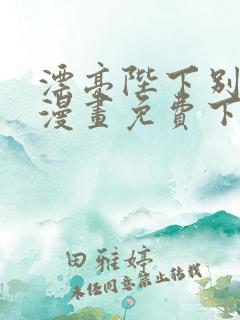 漂亮陛下别
漫畫免費下
田雅婷
未经同意禁止转载